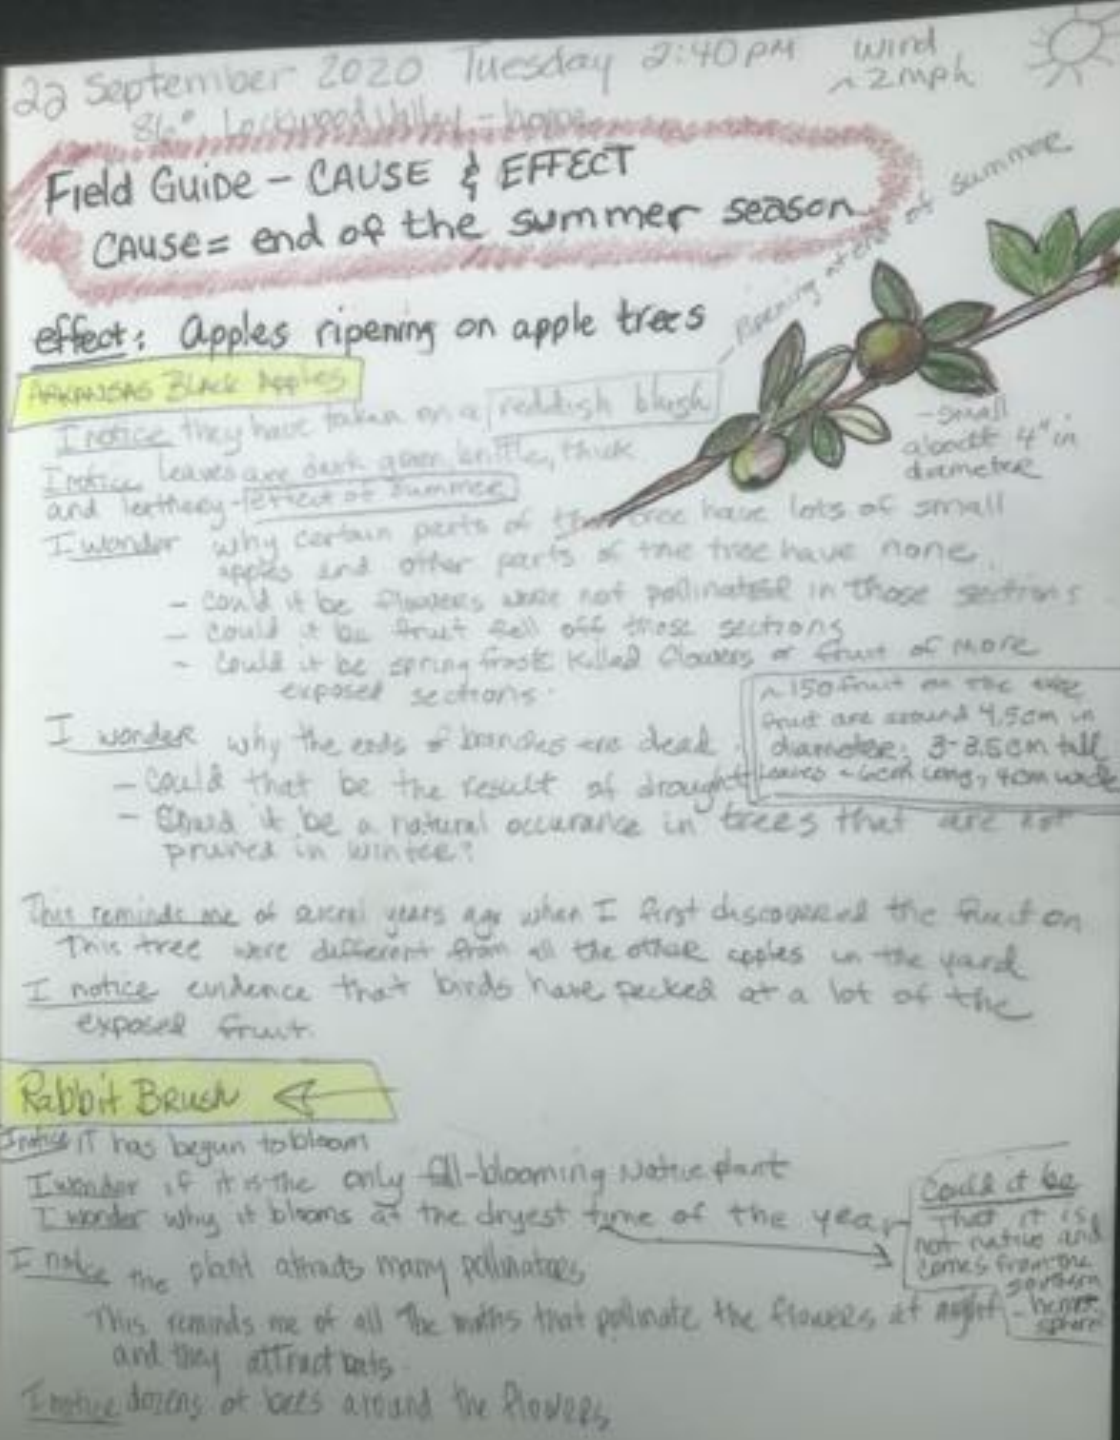 22 September 2020 Tuesday 2:40PM
wind
~2mph
86° Lockwood Valley - home
Field Guide - CAUSE & EFFECT
CAUSE = end of the summer season
effect: Apples ripening on apple trees
- Ripening at end of summer
ARKANSAS Black Apples
I notice they have taken on a reddish blush
I notice leaves are dark green, brittle, thick
and leathery - effect of summer
- small
about 4" in
diameter
I wonder why certain parts of the tree have lots of small
apples and other parts of the tree have none.
- Could it be flowers were not pollinated in those sections
- Could it be fruit fell off those sections
- Could it be spring frost killed flowers or fruit of more
exposed sections.
~150 fruit on the tree
fruit are around 4.5cm in
diameter; 3-3.5cm tall
Leaves ~6cm long, 4cm wide
I wonder why the ends of branches are dead.
- Could that be the result of drought
- Could it be a natural occurance in trees that are not
pruned in winter?
This reminds me of several years ago when I first discovered the fruit on
This tree were different from all the other apples in the yard
I notice evidence that birds have pecked at a lot of the
exposed fruit.
Rabbit Brush
I notice it has begun to bloom
I wonder if it is the only fall-blooming Native plant
I wonder why it blooms at the dryest time of the year
Could it be
That it is
not native and
comes from the
southern
hemi-
sphere
I notice the plant attracts many pollinators
This reminds me of all The moths that pollinate the flowers at night
and they attract bats.
I notice dozens of bees around the flowers